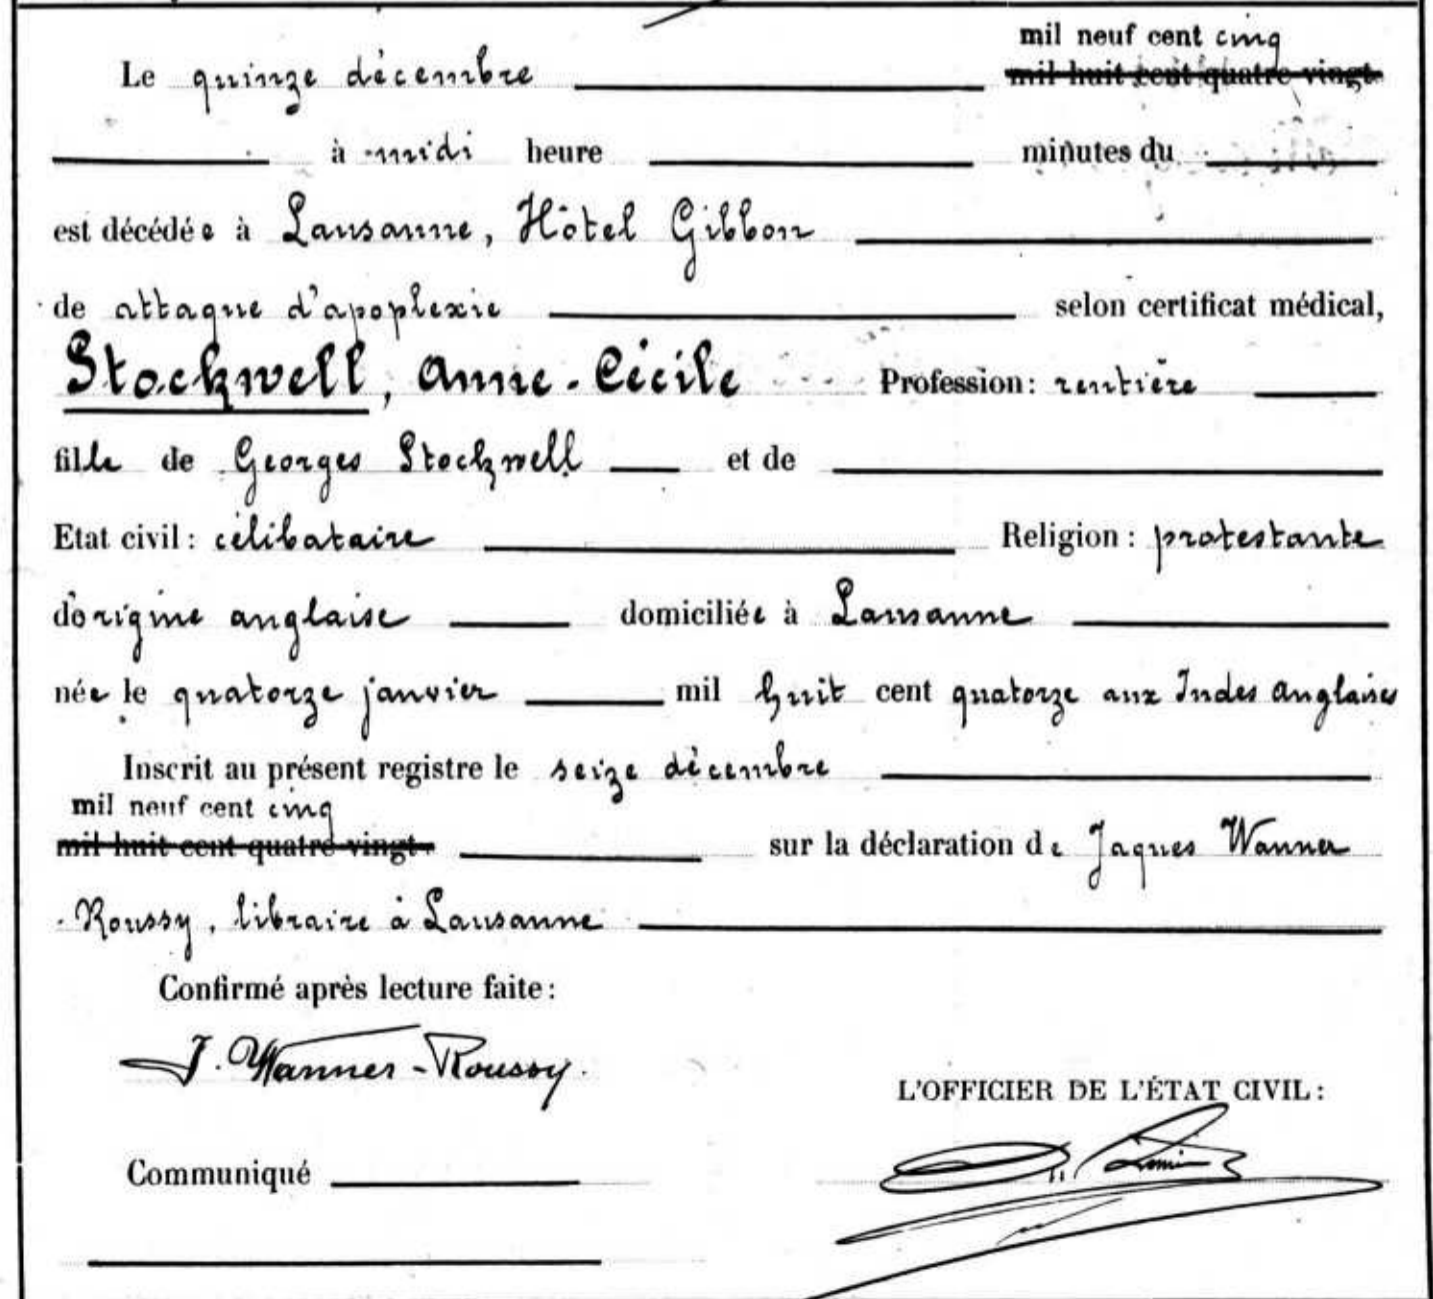 mil neuf cent cinq
Le quinze décembre mil huit cent quatre-vingt-
à midi heure minutes du
est décédée à Lausanne, Hôtel Gibbon
de attaque d'apoplexie selon certificat médical,
Stockwell, Anne-Cécile Profession: rentière
fille de Georges Stockwell et de
Etat civil: célibataire Religion: protestante
d'origine anglaise domiciliée à Lausanne
née le quatorze janvier mil huit cent quatorze aux Indes anglaises
Inscrit au présent registre le seize décembre
mil neuf cent cinq
mil huit cent quatre-vingt- sur la déclaration de Jaques Wanner
-Roussy, libraire à Lausanne
Confirmé après lecture faite:
J. Wanner-Roussy.
L'OFFICIER DE L'ÉTAT CIVIL:
Communiqué